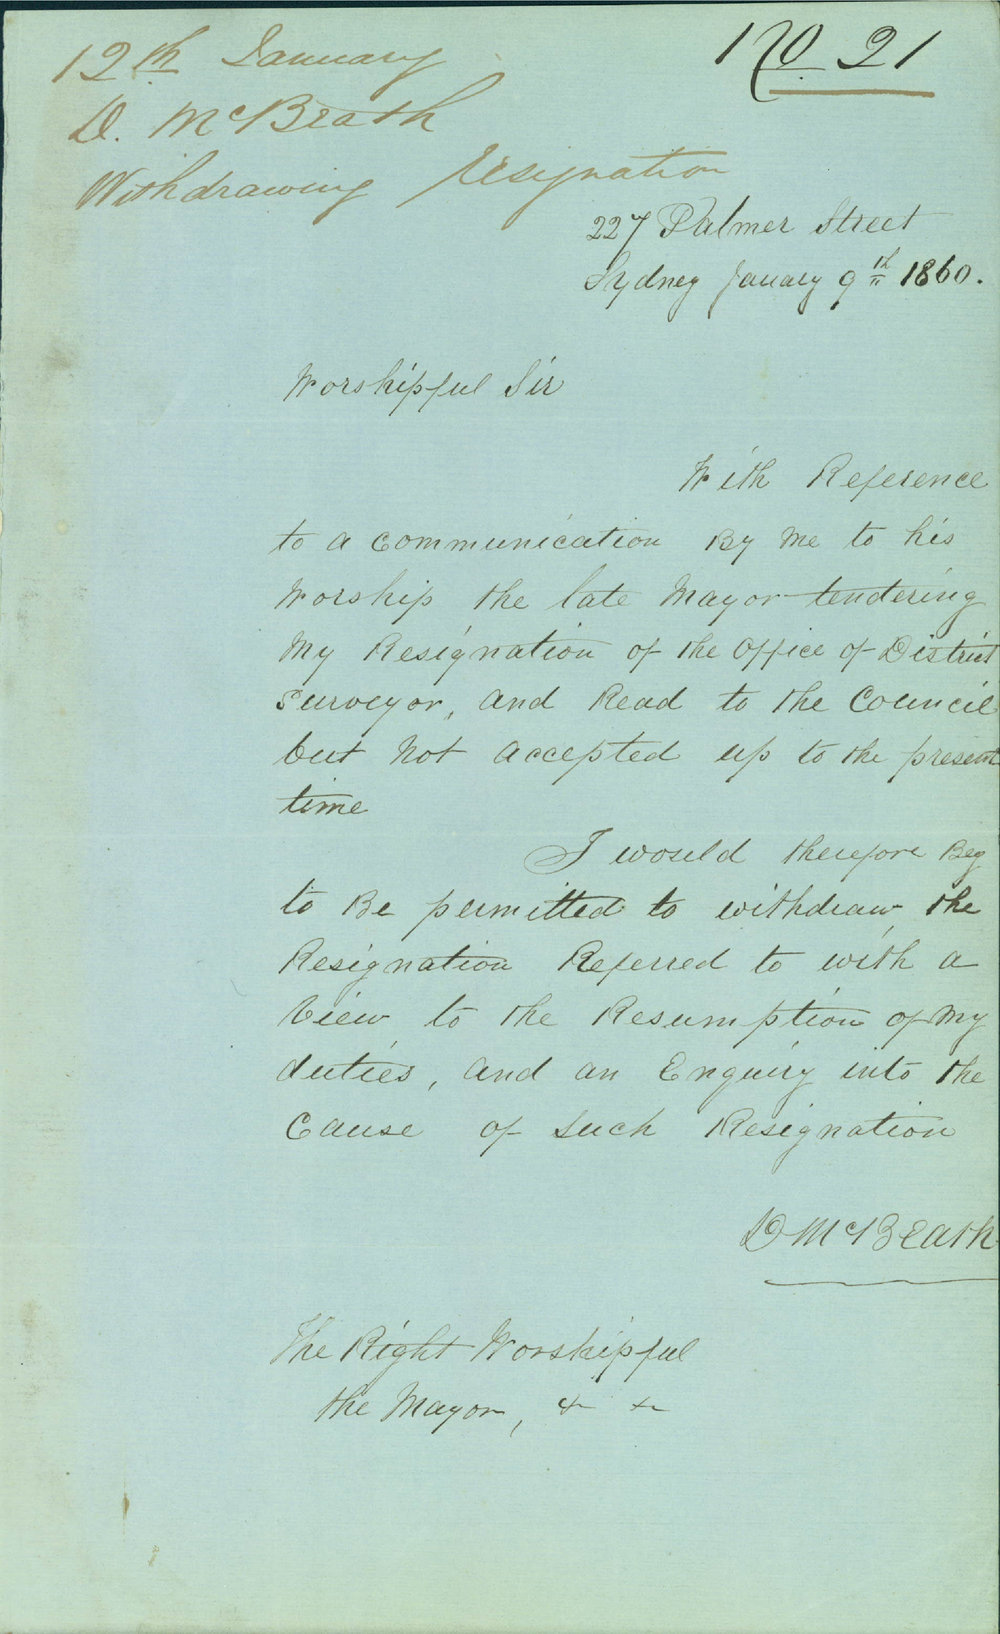 12th January
No 21
D. McBeath
Withdrawing resignation
227 Palmer Street
Sydney January 9th 1860.
Worshipful Sir
With Reference
to a communication By Me to his
Worship the late Mayor tendering
My Resignation of the Office of District
Surveyor, and Read to the Council
but Not accepted up to the present
time
I would therefore Beg
to Be permitted to withdraw the
Resignation Referred to with a
View to the Resumption of My
duties, and an Enquiry into the
Cause of Such Resignation
D McBeath
The Right Worshipful
the Mayor, & &